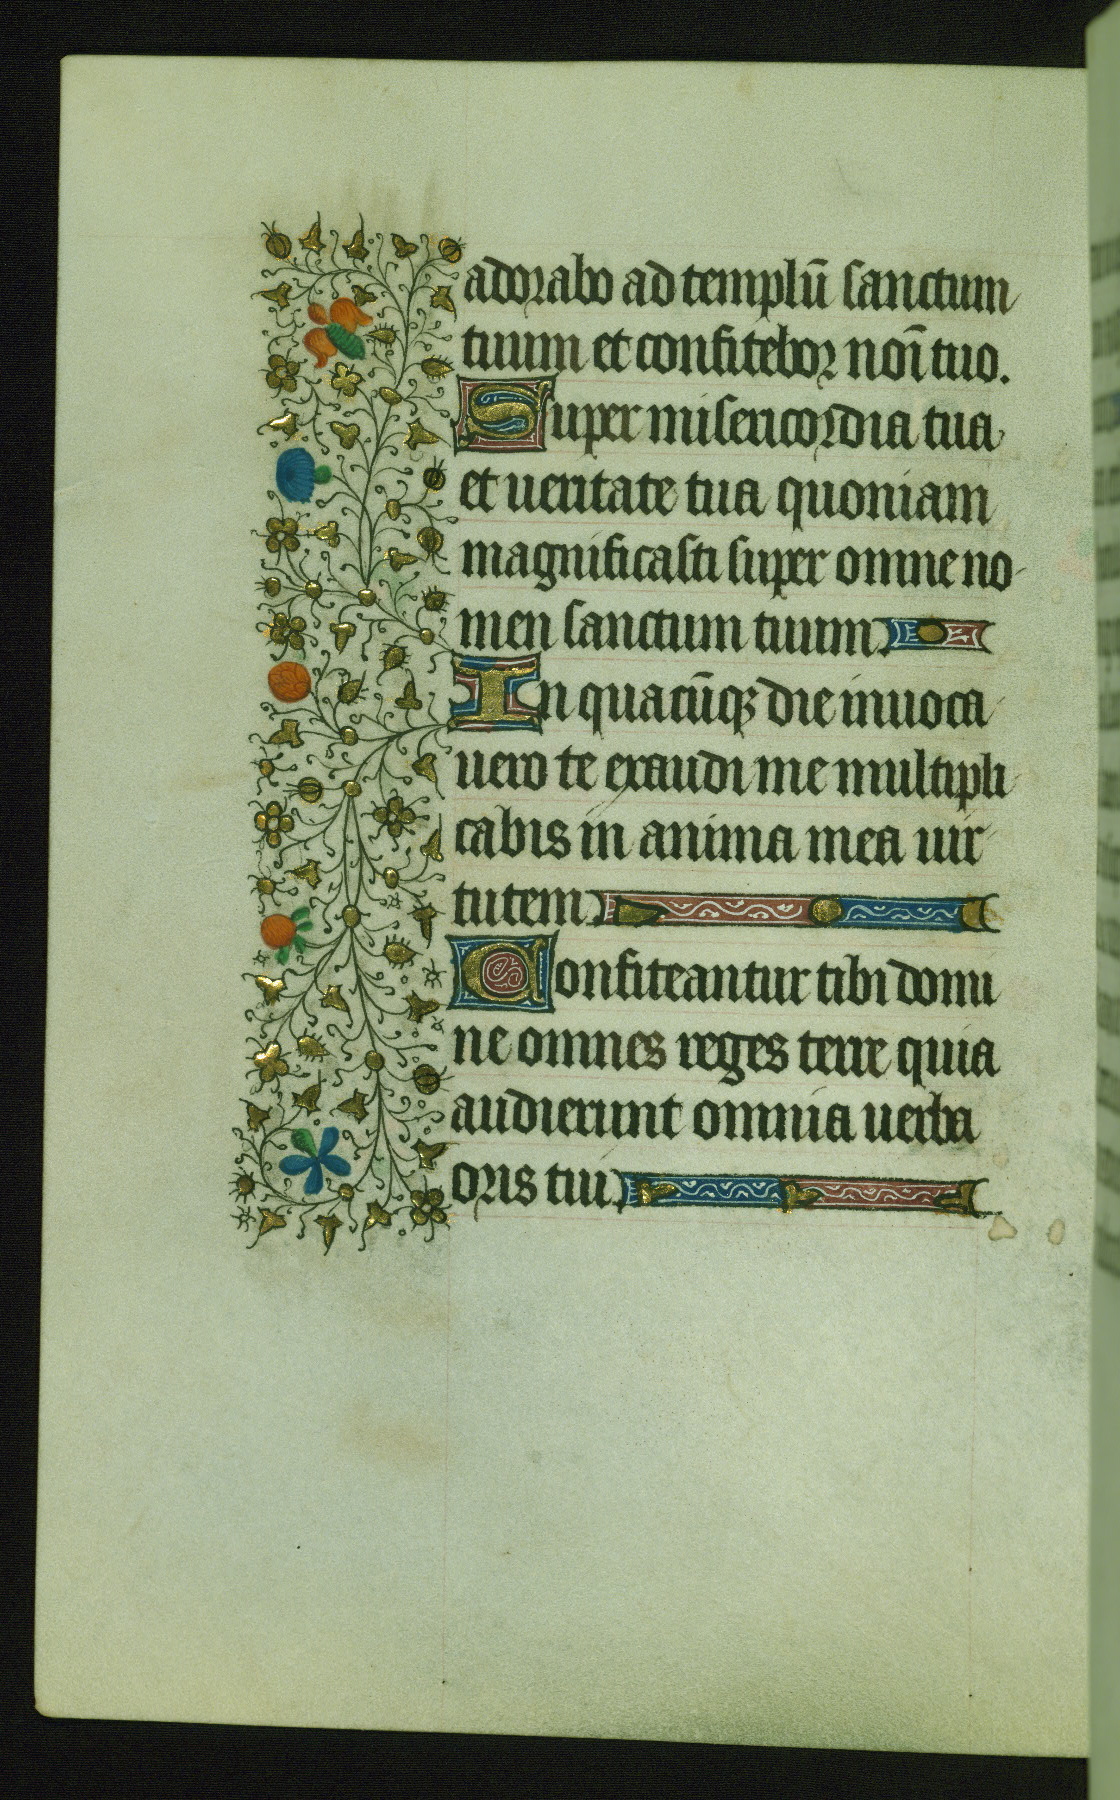 adorabo ad templū sanctum
tuum et confitebor noī tuo.
Super misericordia tua
et ueritate tua quoniam
magnificasti super omne no
men sanctum tuum
In quacūqꝫ die inuoca
uero te exaudi me multipli
cabis in anima mea uir
tutem
Confiteantur tibi domi
ne omnes reges terre quia
audierunt omnia uerba
oris tui